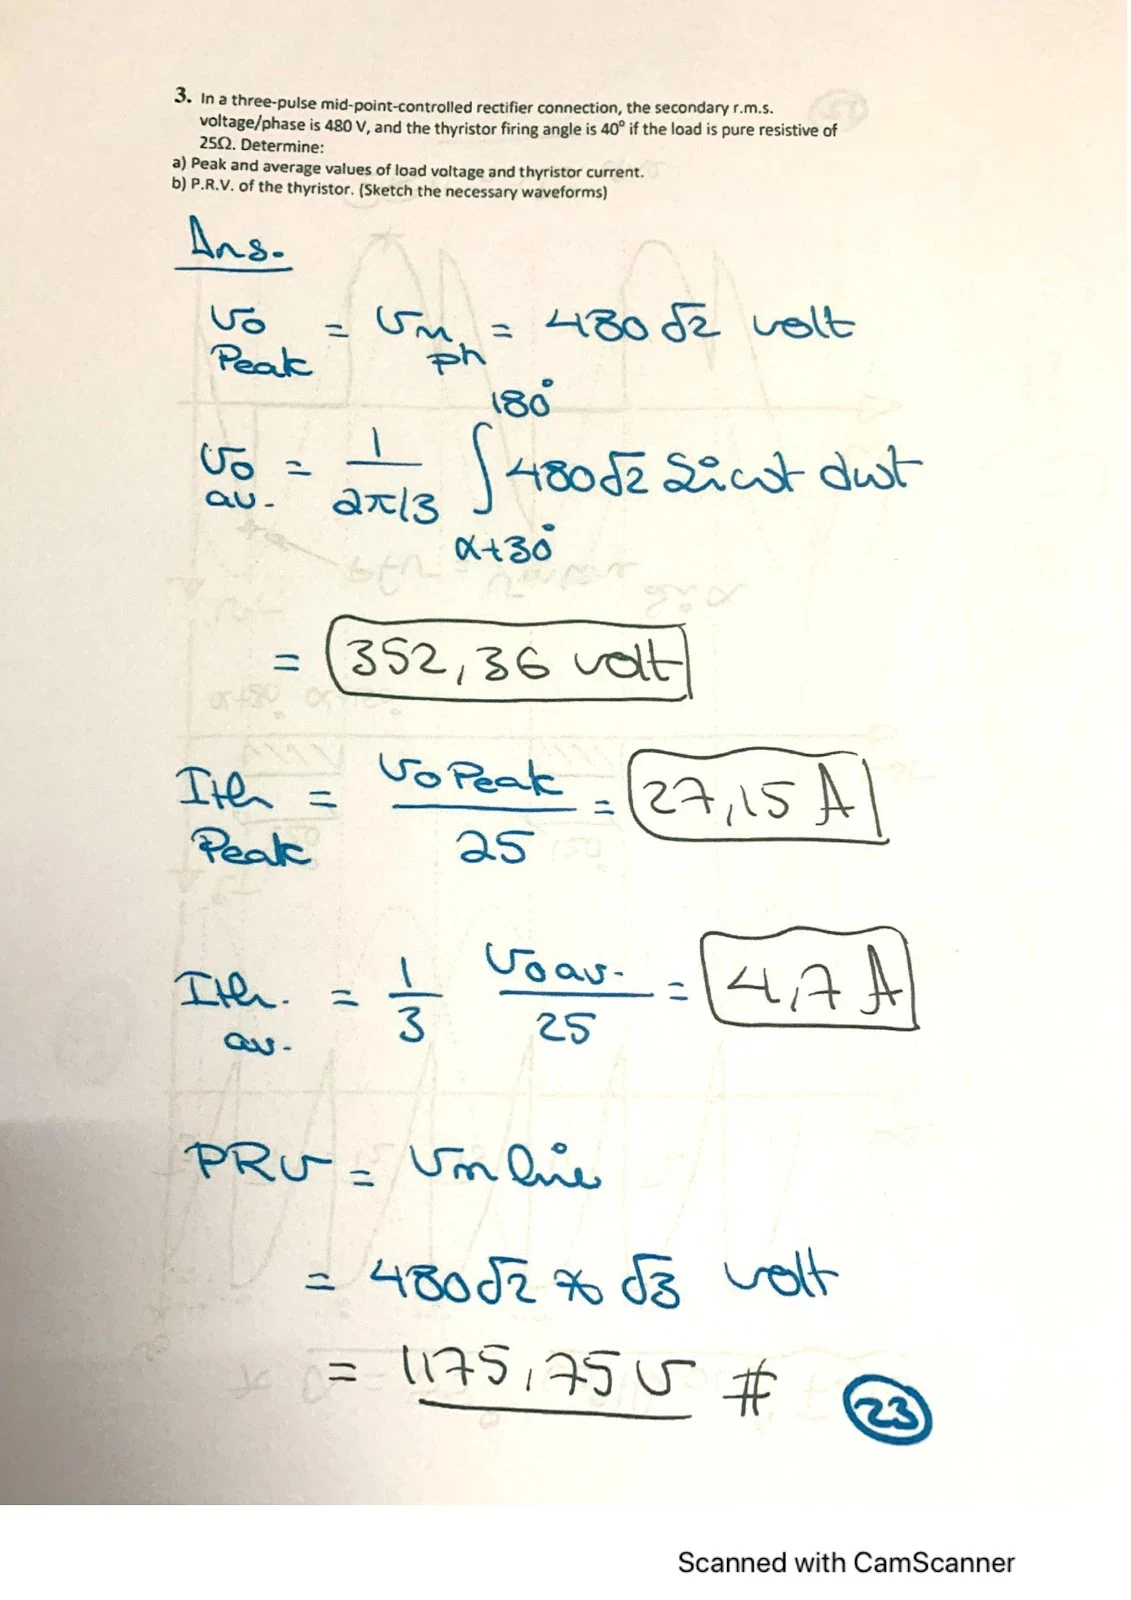 3. In a three-pulse mid-point-controlled rectifier connection, the secondary r.m.s.
voltage/phase is 480 V, and the thyristor firing angle is 40° if the load is pure resistive of
25Ω. Determine:
a) Peak and average values of load voltage and thyristor current.
b) P.R.V. of the thyristor. (Sketch the necessary waveforms)
Ans.
Vo Peak = Vm ph = 480 √2 volt
Vo av. = 1/(2π/3) ∫ 480√2 Sin wt dwt
180°
α+30°
= 352,36 volt
Ith Peak = Vo Peak / 25 = 27,15 A
Ith. av. = 1/3 Vo av. / 25 = 4,7 A
PRV = Vm line
= 480√2 * √3 volt
= 1175,75 V #
23
Scanned with CamScanner